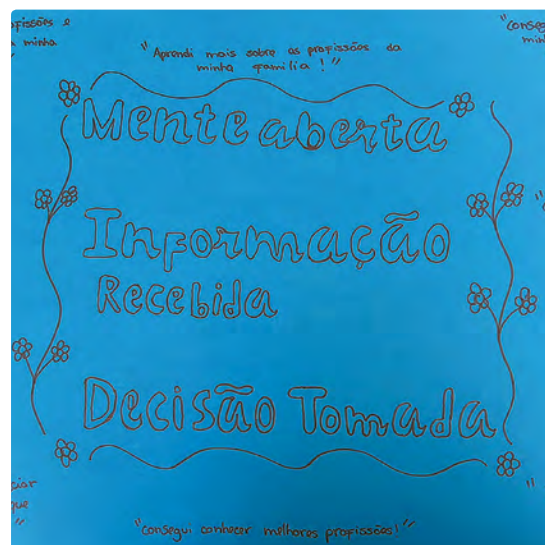 ofissões e
minha
"conseg
min
"Aprendi mais sobre as profissões da
minha familia!"
Mente aberta
Informação
Recebida
Decisão Tomada
ciar
que
"consegui conhecer melhores profissões!"